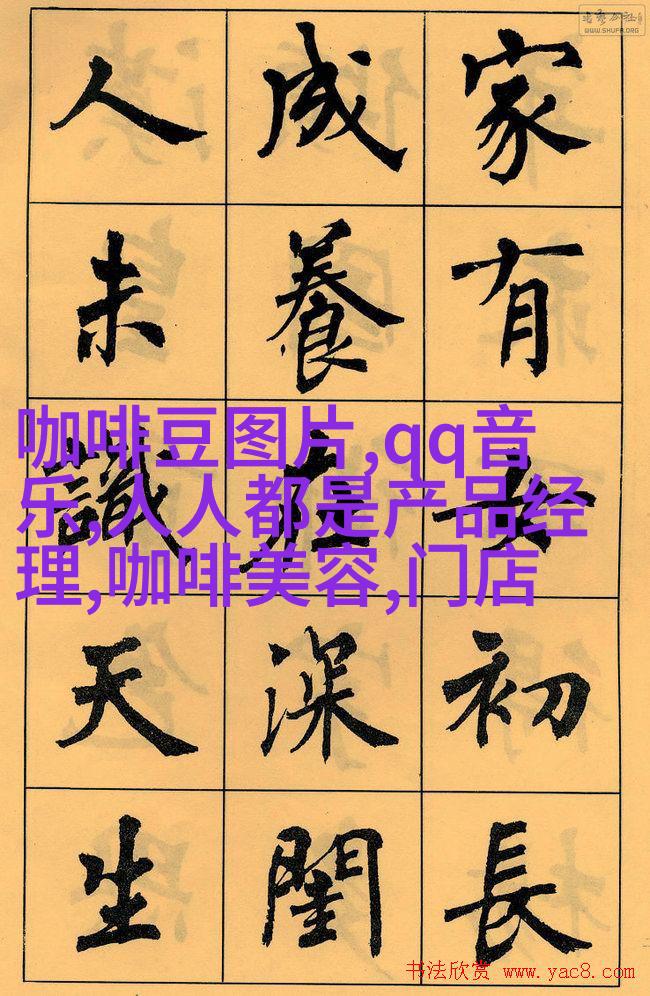 WWW.SHUFA.ORG
家有女初長
成養在深閨
人未識天生
咖啡豆图片,qq音
乐,人人都是产品经
理,咖啡美容,门店
书法欣赏 www.yac8.com